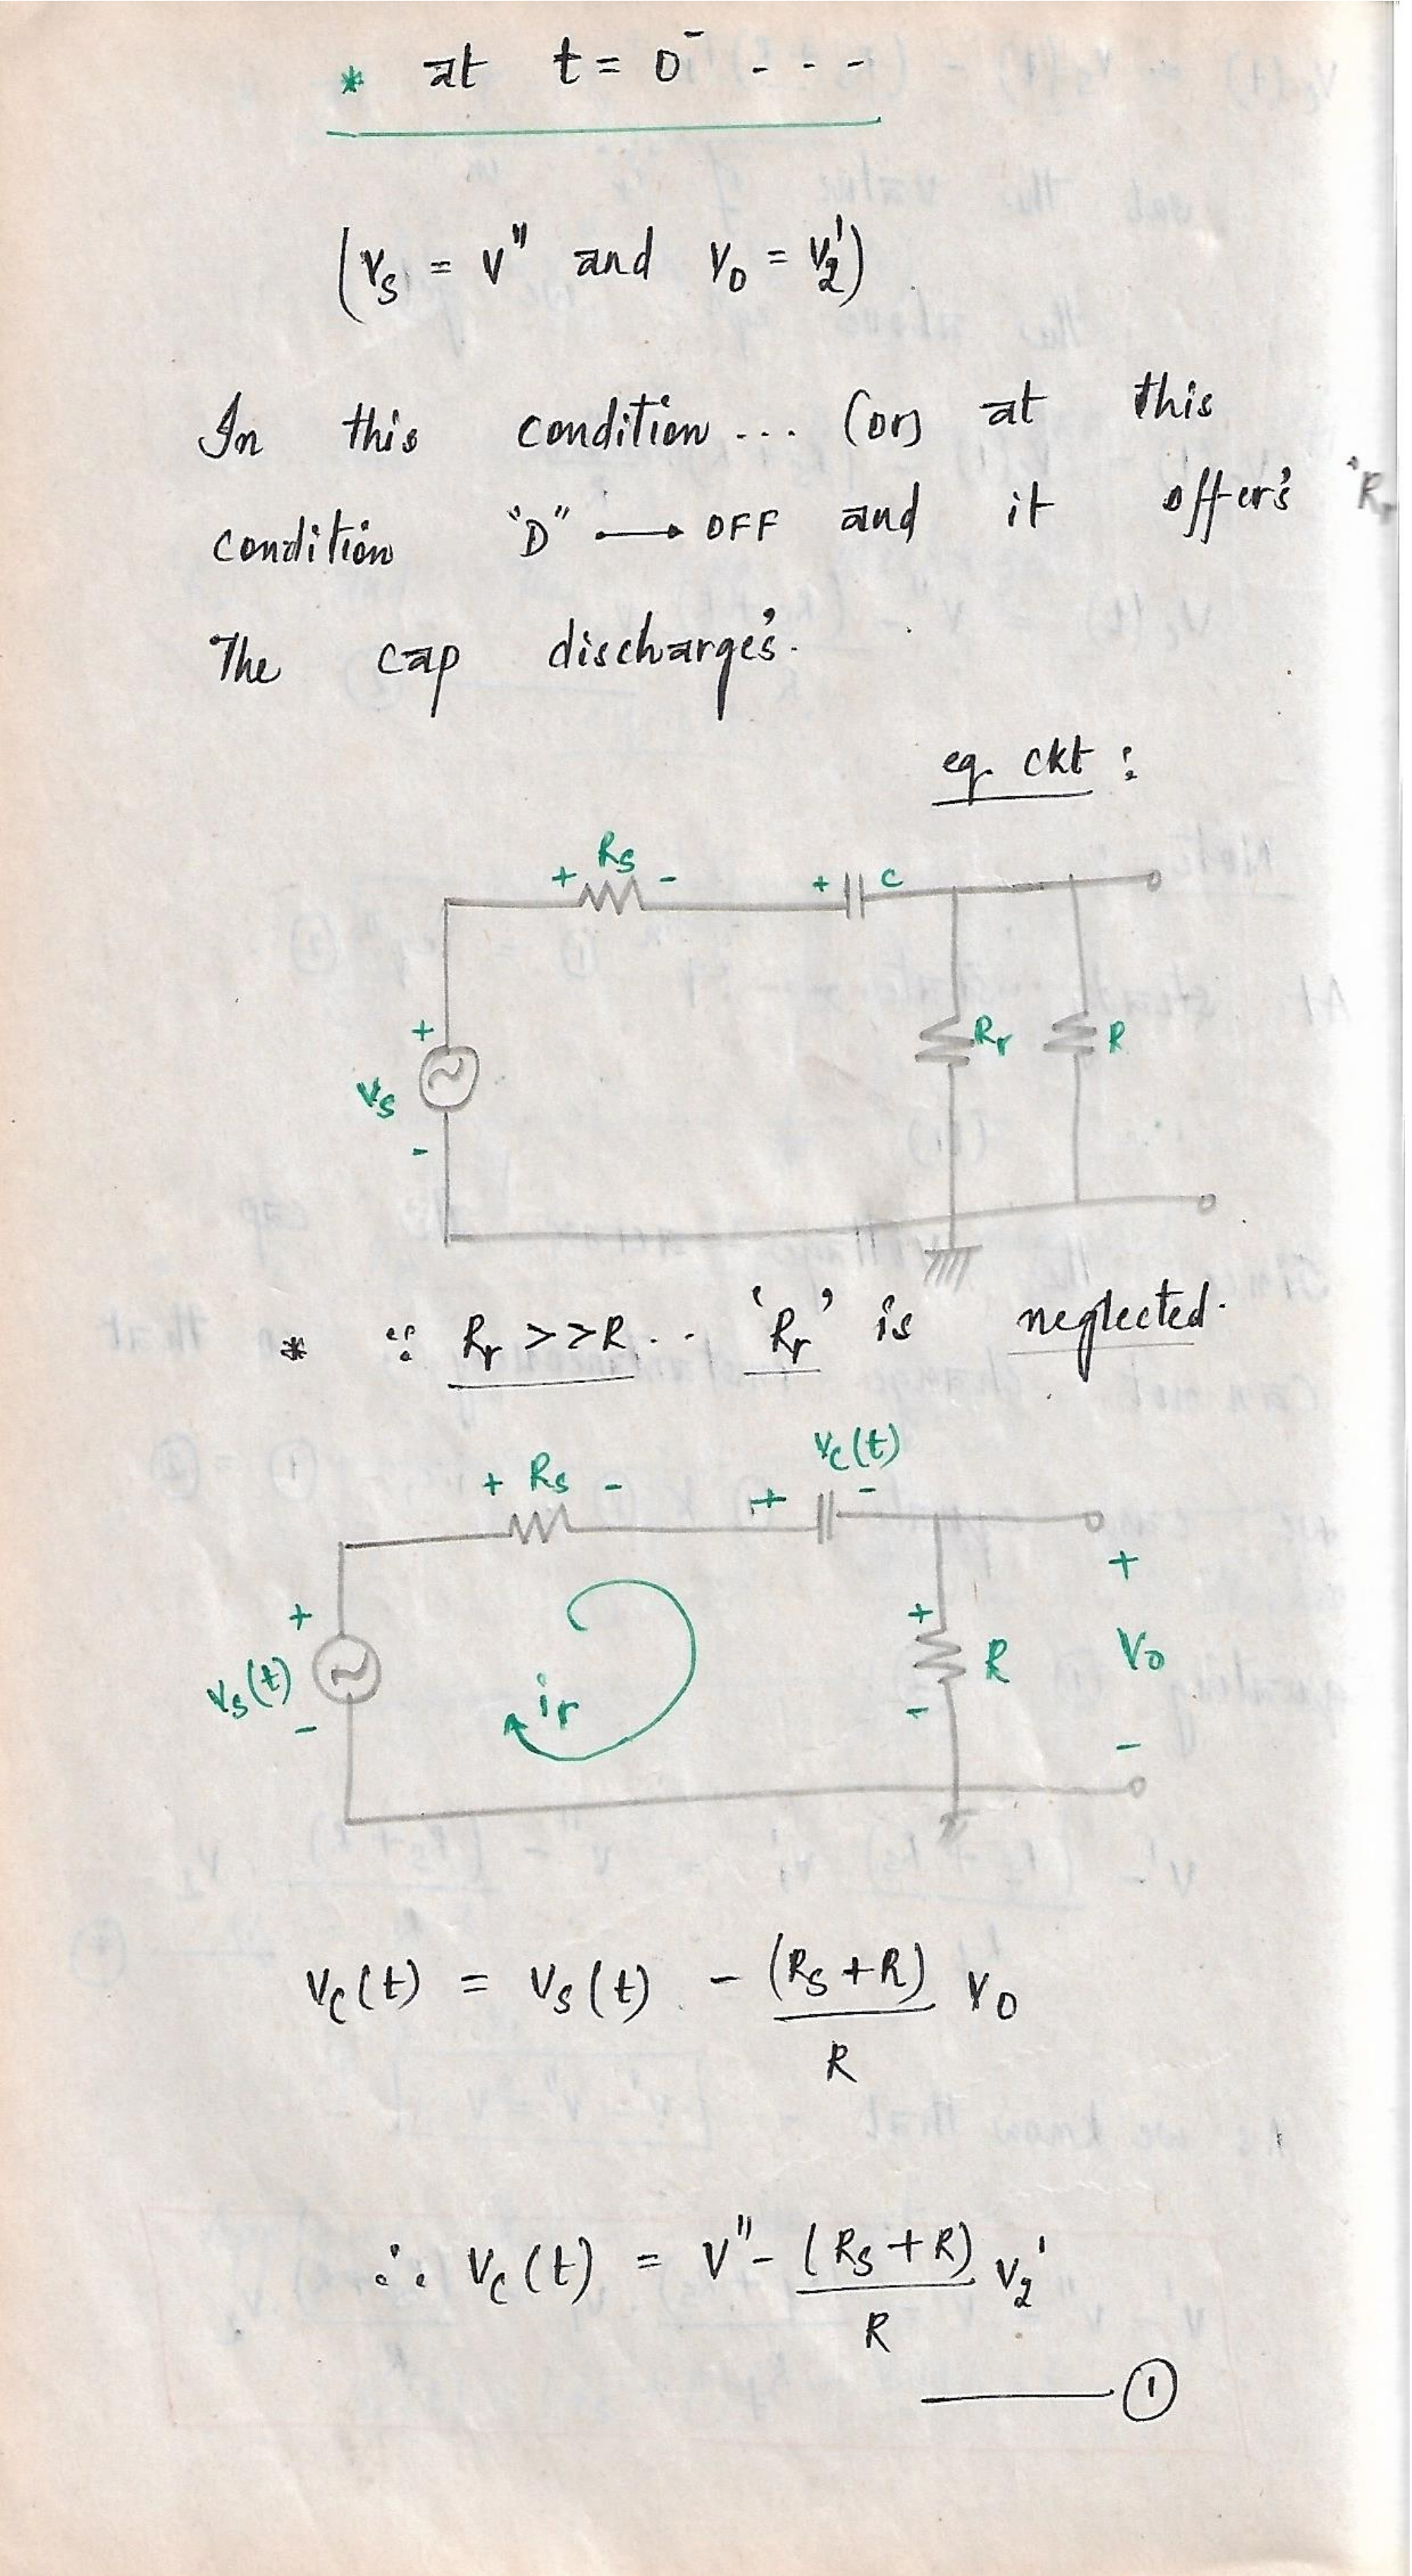 * at t = 0⁻ - - -
(Vs = V" and Vo = V2')
In this condition ... (or) at this
condition "D" → OFF and it offer's 'Rr
The cap discharge's.
eq. ckt :
+ Rs - + C
+ Vs - Rr R
* ∵ Rr >>R . . 'Rr' is neglected.
Vc(t)
+ Rs - + -
+ Vs(t) - ir + R - + Vo -
Vc(t) = Vs(t) - (Rs+R)/R Vo
∴ Vc(t) = V" - (Rs+R)/R V2'
——— ①